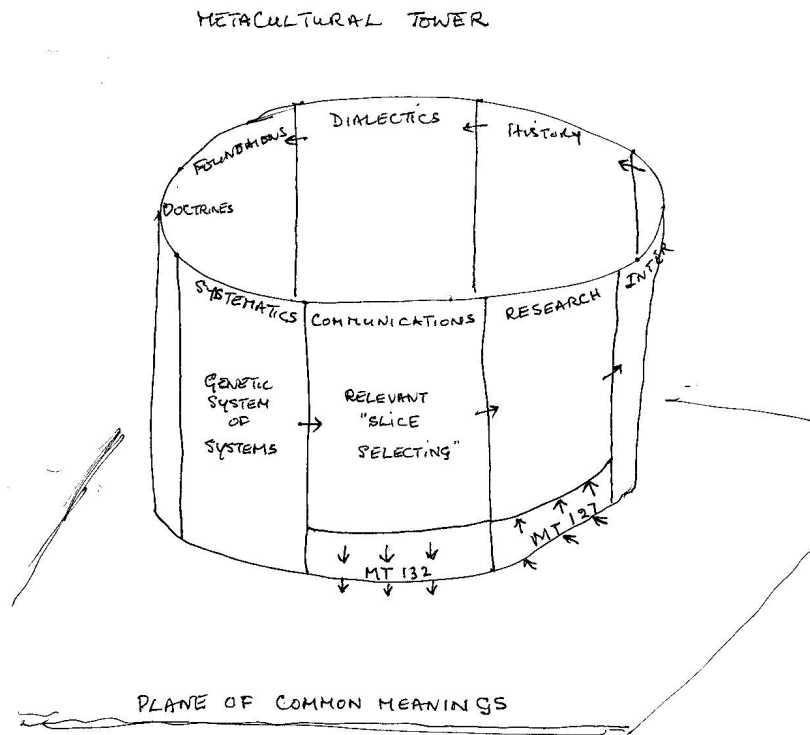 METACULTURAL TOWER
DIALECTICS
FOUNDATIONS
HISTORY
DOCTRINES
SYSTEMATICS
COMMUNICATIONS
RESEARCH
INTER
GENETIC
SYSTEM
OF
SYSTEMS
RELEVANT
"SLICE
SELECTING"
MT 132
MT 127
PLANE OF COMMON MEANINGS